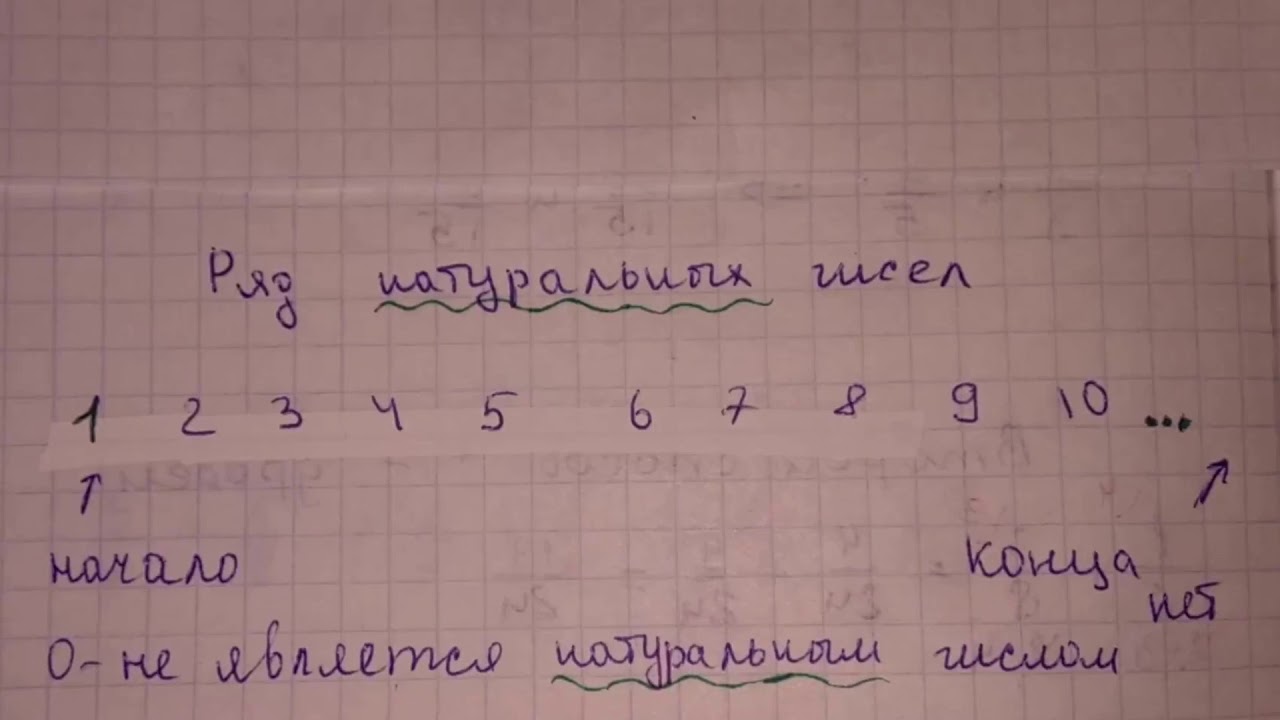 Ряд натуральных чисел
1 2 3 4 5 6 7 8 9 10 ...
начало
конца
нет
0 - не является натуральным числом